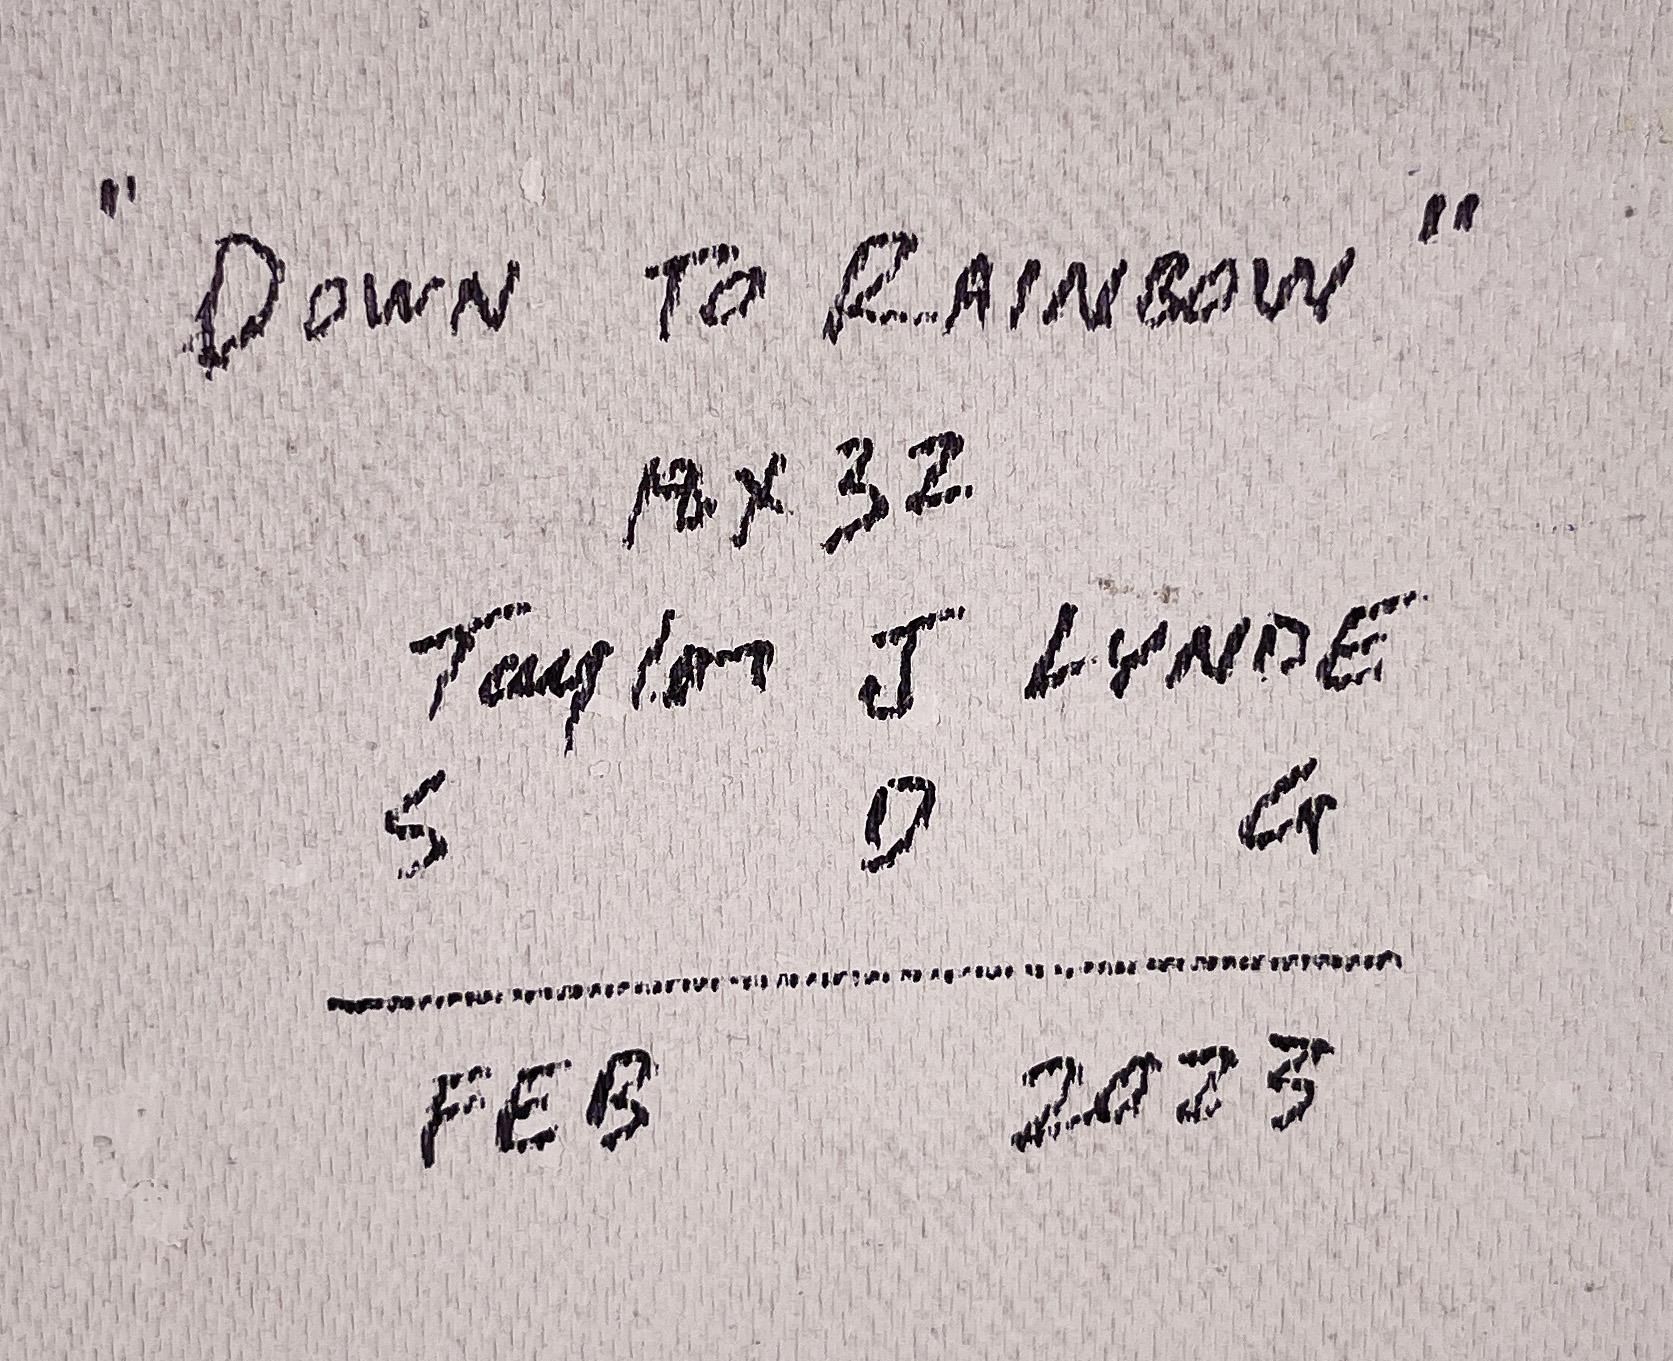 "DOWN TO RAINBOW"
X 32
Taylor J LYNDE
S D G
FEB 2023